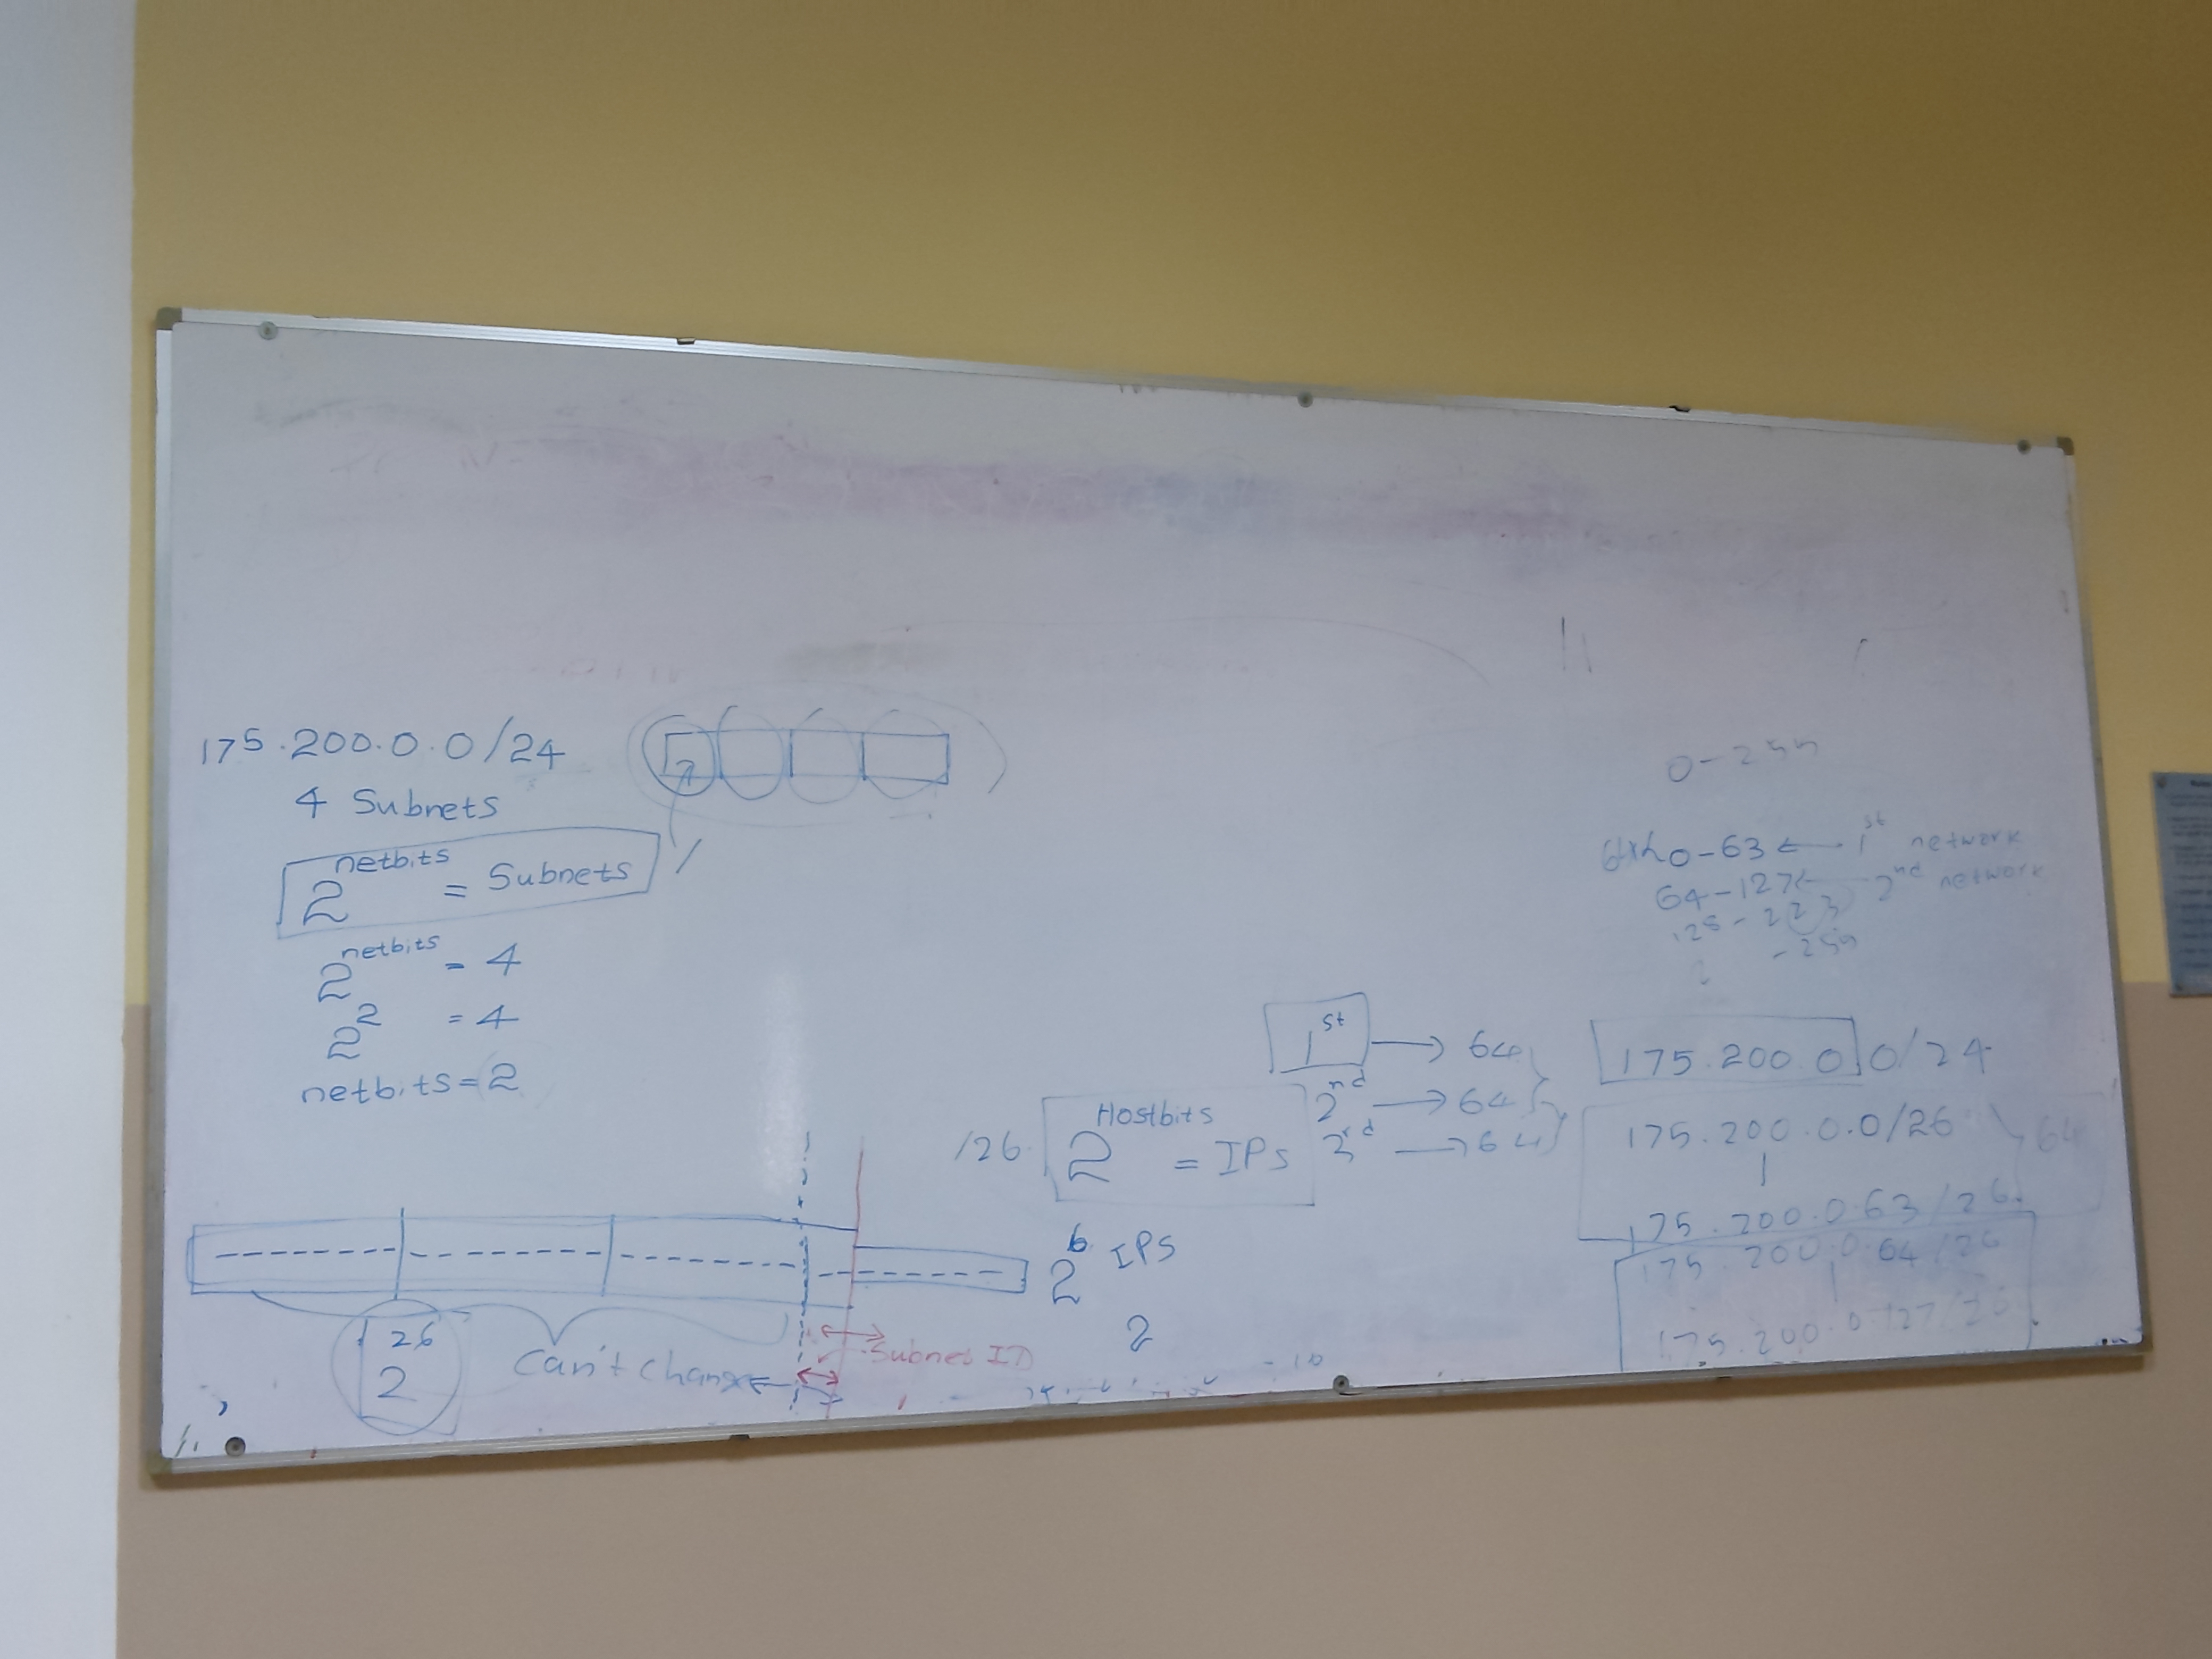 175.200.0.0/24
4 Subnets
2^netbits = Subnets
2^netbits = 4
2^2 = 4
netbits = 2
2^26
Can't change
Subnet ID
/26
2^Hostbits = IPs
2^6 IPS
2
1st → 64
2nd → 64
3rd → 64
0-255
0-63 ← 1st network
64-127 ← 2nd network
128-223
-255
175.200.0.0/24
175.200.0.0/26
64
175.200.0.63/26
175.200.0.64/26
175.200.0.127/26